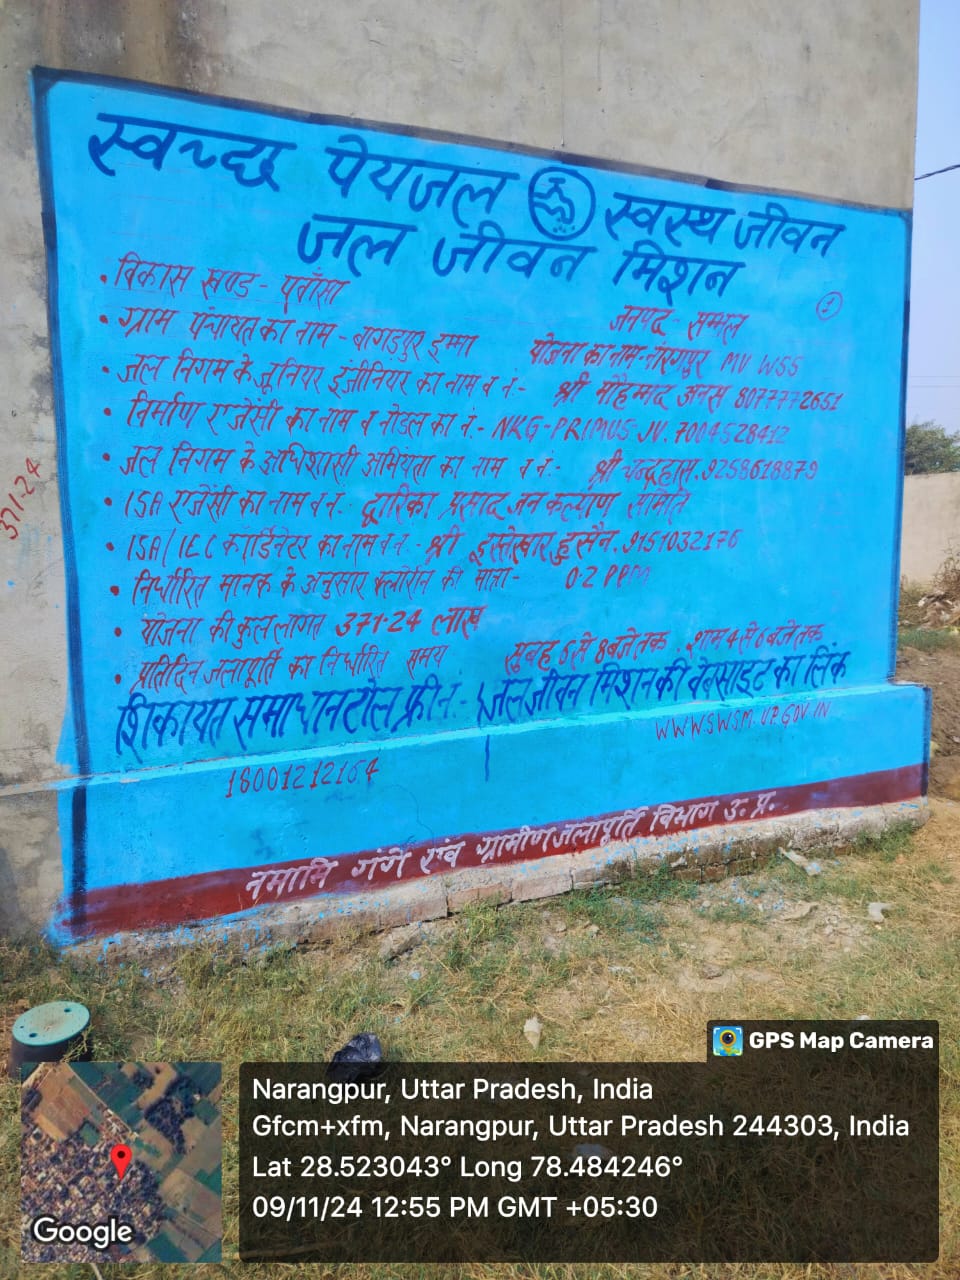 स्वच्छ पेयजल स्वस्थ जीवन
जल जीवन मिशन
1
• विकास खण्ड - पवाँसा
जनपद - सम्भल
• ग्राम पंचायत का नाम - बागडपुर इम्मा
योजना का नाम - नारंगपुर MV WSS
• जल निगम के जूनियर इंजीनियर का नाम व नं - श्री मोहम्मद अनस 8077772651
• निर्माण एजेंसी का नाम व नोडल का नं. - NKG-PRIMUS-JV. 7004528412
• जल निगम के अधिशासी अभियंता का नाम व नं. - श्री चन्द्रहास. 9258618879
• ISA एजेंसी का नाम व नं. - द्वारिका प्रसाद जन कल्याण समिति
• ISA/IEC कार्डिनेटर का नाम व नं. - श्री इस्तेखार हुसैन. 9151032176
• निर्धारित मानक के अनुसार क्लोरीन की मात्रा - 0.2 PPM
• योजना की कुल लागत 371.24 लाख
• प्रतिदिन जलापूर्ति का निर्धारित समय सुबह 6 से 8 बजे तक . शाम 4 से 6 बजे तक
शिकायत समाधान टोल फ्री नं. - जल जीवन मिशन की वेबसाइट का लिंक
18001212164
WWW.SWSM.UP.GOV.IN
नमामि गंगे एंव ग्रामीण जलापूर्ति विभाग उ. प्र.
371.24
GPS Map Camera
Narangpur, Uttar Pradesh, India
Gfcm+xfm, Narangpur, Uttar Pradesh 244303, India
Lat 28.523043° Long 78.484246°
09/11/24 12:55 PM GMT +05:30
Google